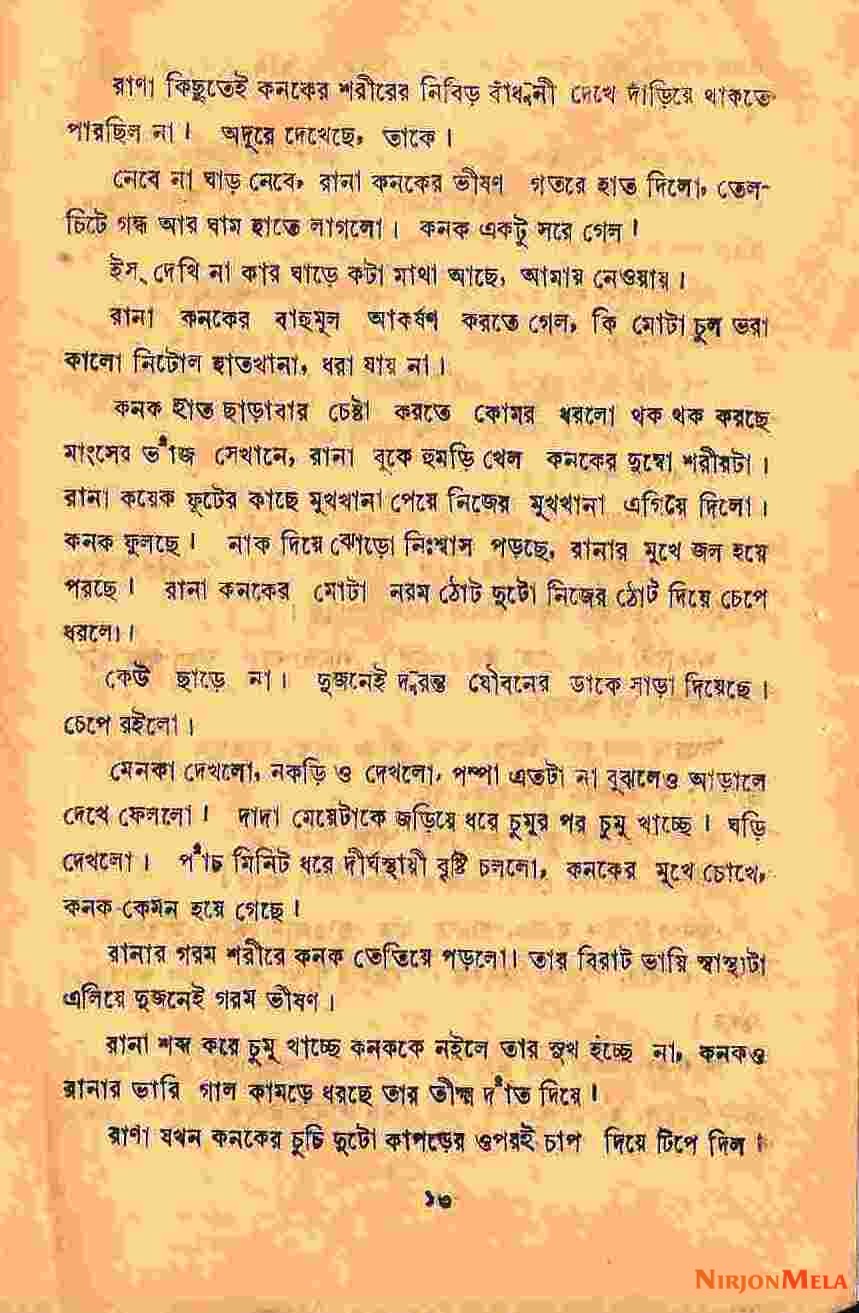 রাণা কিছুতেই কনকের শরীরের নিবিড় বাঁধুনী দেখে দাঁড়িয়ে থাকতে
পারছিল না। অদূরে দেখেছে, তাকে।
নেবে না ঘাড় নেবে, রানা কনকের ভীষণ গতরে হাত দিলো, তেল-
চিটে গন্ধ আর ঘাম হাতে লাগলো। কনক একটু সরে গেল।
ইস্ দেখি না কার ঘাড়ে কটা মাথা আছে, আমায় নেওয়ায়।
রানা কনকের বাহুমূল আকর্ষণ করতে গেল, কি মোটা চুল ভরা
কালো নিটোল হাতখানা, ধরা যায় না।
কনক হাত ছাড়াবার চেষ্টা করতে কোমর ধরলো থক থক করছে
মাংসের ভাঁজ সেখানে, রানা বুকে হুমড়ি খেল কনকের দুম্বো শরীরটা।
রানা কয়েক ফুটের কাছে মুখখানা পেয়ে নিজের মুখখানা এগিয়ে দিলো।
কনক ফুলছে। নাক দিয়ে ঝোড়ো নিঃশ্বাস পড়ছে, রানার মুখে জল হয়ে
পরছে। রানা কনকের মোটা নরম ঠোট দুটো নিজের ঠোট দিয়ে চেপে
ধরলো।।
কেউ ছাড়ে না। দুজনেই দুরন্ত যৌবনের ডাকে সাড়া দিয়েছে।
চেপে রইলো।
মেনকা দেখলো, নকড়ি ও দেখলো, পম্পা এতটা না বুঝলেও আড়ালে
দেখে ফেললো। দাদা মেয়েটাকে জড়িয়ে ধরে চুমুর পর চুমু খাচ্ছে। ঘড়ি
দেখলো। পাঁচ মিনিট ধরে দীর্ঘস্থায়ী বৃষ্টি চললো, কনকের মুখে চোখে,
কনক কেমন হয়ে গেছে।
রানার গরম শরীরে কনক তেতিয়ে পড়লো। তার বিরাট ভায়ি স্বাস্থ্যটা
এলিয়ে দুজনেই গরম ভীষণ।
রানা শব্দ করে চুমু খাচ্ছে কনককে নইলে তার সুখ হচ্ছে না, কনকও
রানার ভারি গাল কামড়ে ধরছে তার তীক্ষ্ম দাঁত দিয়ে।
রাণা যখন কনকের চুচি দুটো কাপড়ের ওপরই চাপ দিয়ে টিপে দিল।
১৩
NIRJONMELA